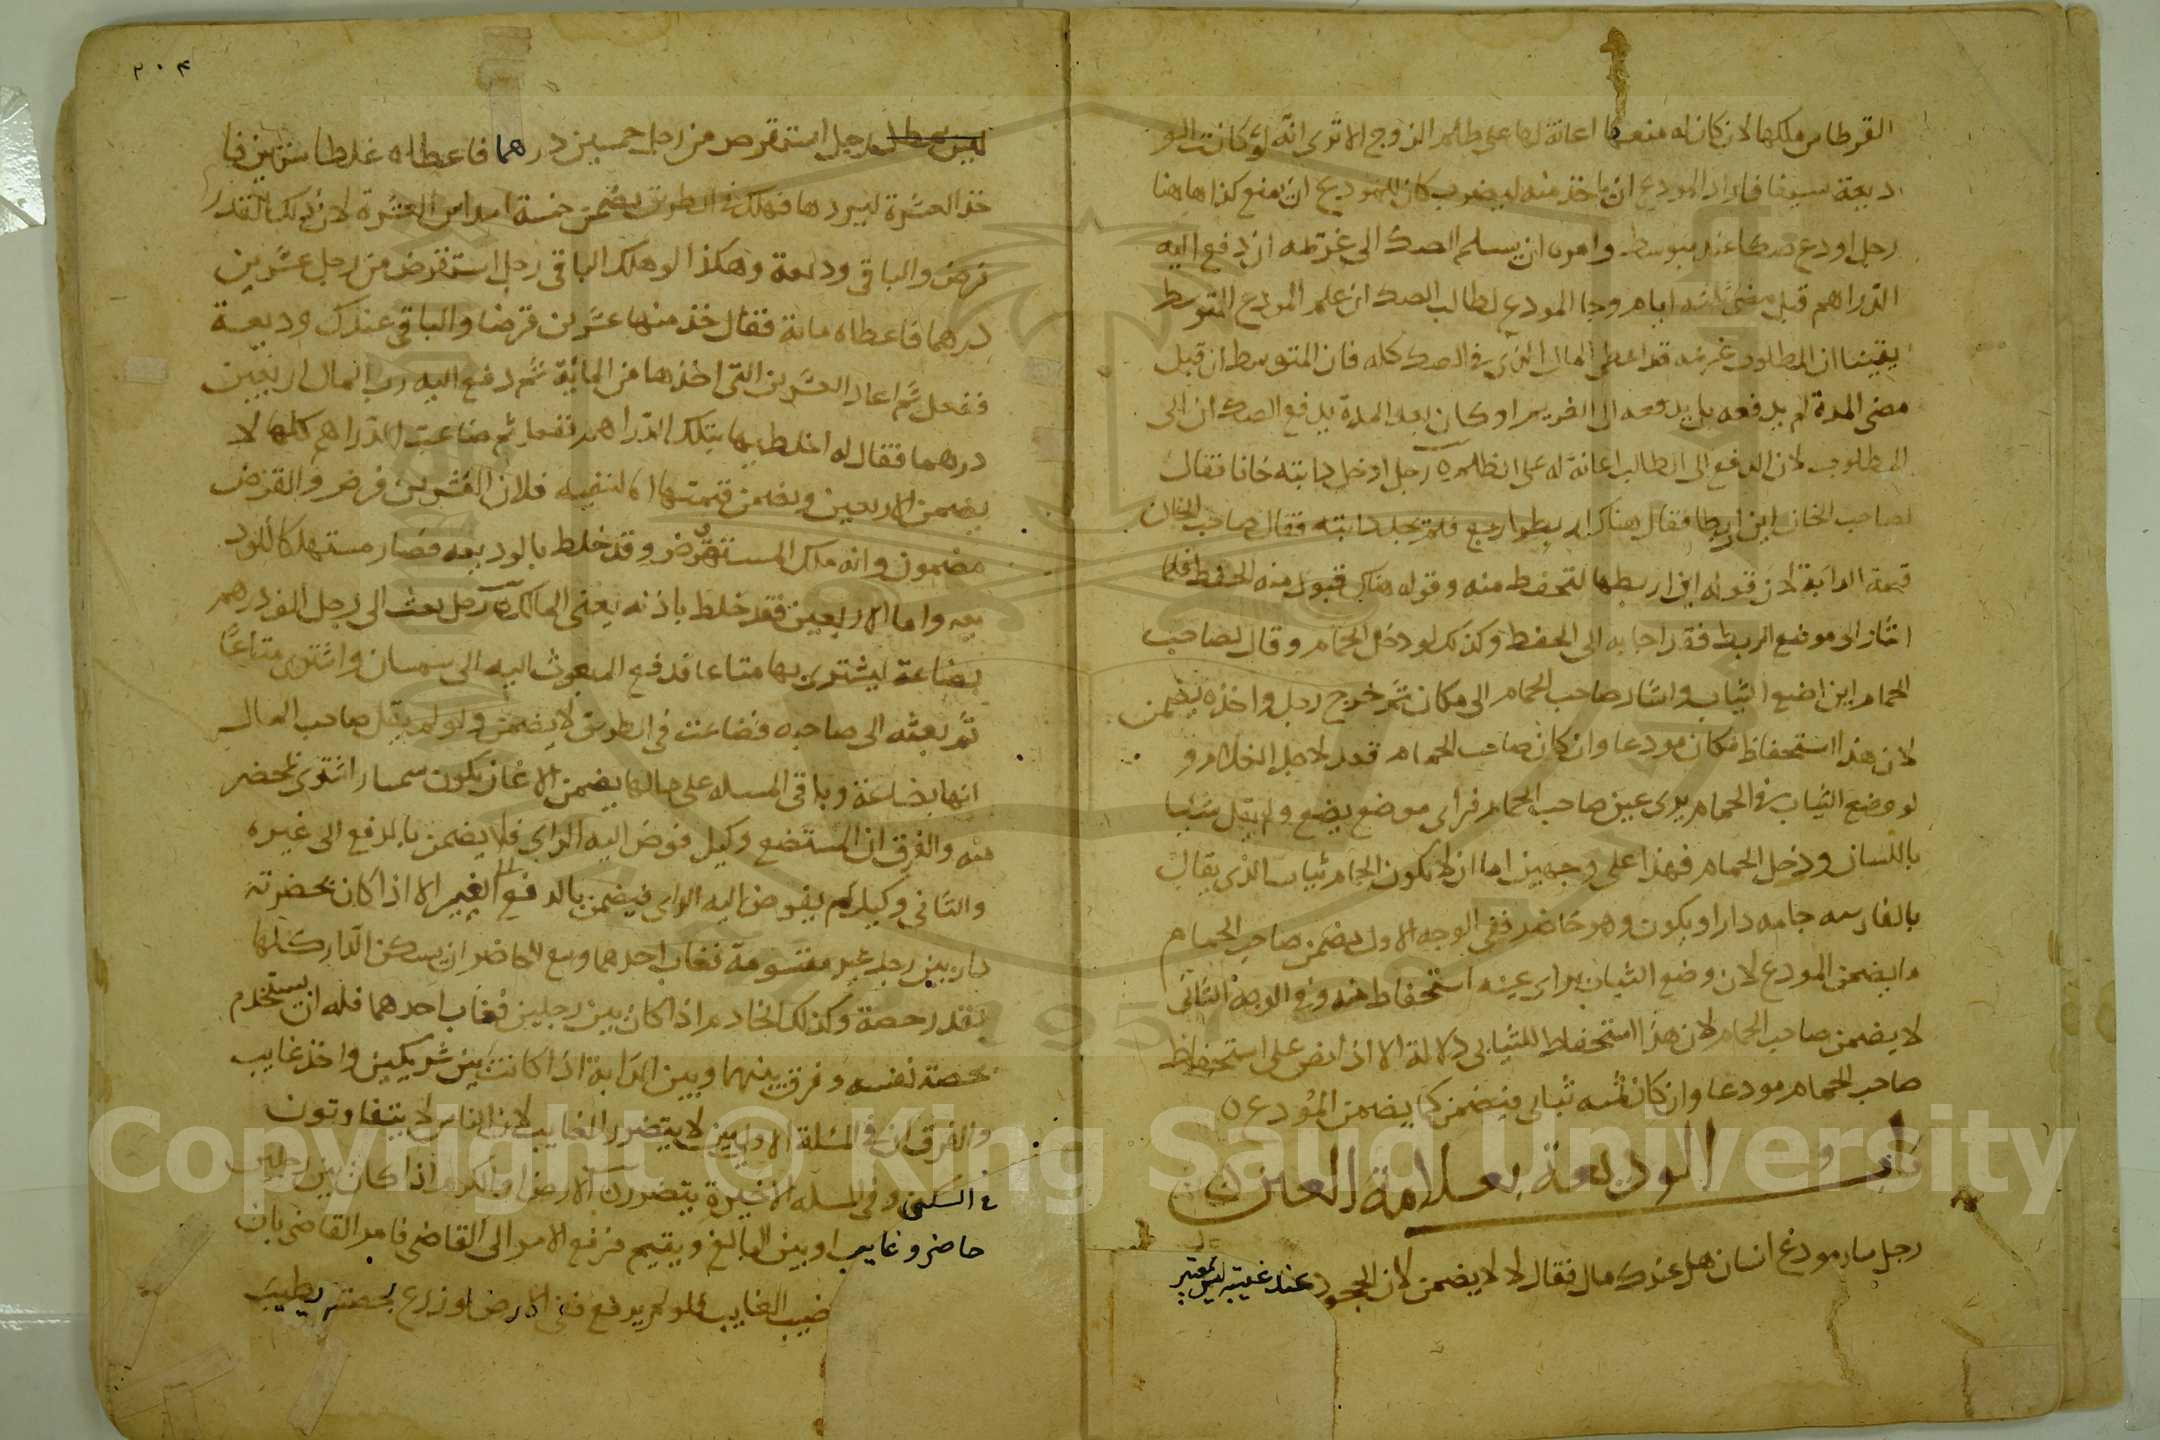 القرطاس ملكها لان كان له منعها اعانة لها على ظلم الزوج الا ترى انه لو كانت الو
ديعة سيفا فاراد المودع ان ياخذ منه ليضرب كان للمودع ان يمنع كذا هاهنا
رجل اودع صكا عند متوسط وامره ان يسلم الصك الى غريمه ان دفع اليه
الدراهم قبل مضى ايام وجا المودع لطالب الصك ان علم المودع المتوسط
يقينا ان المطلوب غريمه قد اعطى المال الذى فى الصك كله فان المتوسط ان قبل
مضى المدة لم يدفعه بل يدفعه الى الغريم او كان بعد المدة يدفع الصك ان الى
المطلوب لان الدفع الى الطالب اعانة له على الظلم رجل ادخل دابته خانا فقال
لصاحب الخان اين اربطها فقال هناك ربطها ورجع فلم يجد دابته فقال صاحب الخان
قيمة الدابة لان قوله اين اربطها لتحفظ منه وقوله هناك قبول منه الحفظ فلما
اشار الى موضع الربط فقد اجابه الى الحفظ وكذلك لو دخل الحمام وقال لصاحب
الحمام اين اضع الثياب واشار صاحب الحمام الى مكان ثم خرج رجل واخذه يضمن
لان هذا استحفاظ فكان مودعا وان كان صاحب الحمام قعد لاجل الغلام و
لو وضع الثياب فى الحمام يرى عين صاحب الحمام فراى موضع يضع ولم يقل شيئا
باللسان ودخل الحمام فهذا على وجهين اما ان لا يكون للحمام ثيابى الذى يقال
بالفارسيه جامه دار او يكون وهو حاضر ففى الوجه الاول يضمن صاحب الحمام
ما يضمن المودع لان وضع الثياب براى عينه استحفاظ منه وفى الوجه الثانى
لا يضمن صاحب الحمام لان هذا استحفاظ للثيابى دلالة الا اذا نص على استحفاظ
صاحب الحمام مودعا وان كان ثمه ثيابى فيضمن كما يضمن المودع ٥
الوديعة بعلامة العين
رجل مودع انسان هل عندك مال فقال لا لا يضمن لان الجحود عند غيبته ليس بمعتبر
٢٠٤
رجل استقرض من رجل خمسين درهما فاعطاه غلطا ستين فا
خذ العشرة ليردها فهلك فى الطريق يضمن خمسة اسداس العشرة لان ذلك القدر
قرض والباقى وديعة وهكذا لو هلك الباقى رجل استقرض من رجل عشرين
درهما فاعطاه ماية فقال خذ منها عشرين قرضا والباقى عندك وديعة
ففعل ثم اعاد العشرين التى اخذها من الماية ثم دفع اليه رب المال اربعين
درهما فقال له اخلطها بتلك الدراهم ففعل ثم ضاعت الدراهم كلها لا
يضمن الاربعين ويضمن قيمتها فلان العشرين قرض والقرض
مضمون وانه ملك المستقرض وقد خلط بالوديعه فصار مستهلكا للود
يعه واما الاربعين فقد خلط باذنه يعنى المالك رجل بعث الى رجل الف درهم
بضاعة ليشترى بها متاعا فدفع المبعوث اليه الى سمسار واشترى متاعا
ثم بعثه الى صاحبه فضاعت فى الطريق لا يضمن ولو لم يقل صاحب المال
انها بضاعة وباقى المسله على حالها يضمن الا ان يكون سمسار اشترى بمحضر
منه والفرق ان المستبضع وكيل فوض اليه الراى فلا يضمن بالدفع الى غيره
والثانى وكيل لم يفوض اليه الراى فيضمن بالدفع الى الغير الا اذا كان بحضرته
دار بين رجلين غير مقسومة فغاب احدهما وسع للحاضر ان يسكن الدار كلها
بقدر حصة وكذلك الخادم اذا كان بين رجلين فغاب احدهما فله ان يستخدم
بحصة نفسه وفرق بينهما وبين الدابة اذا كانت بين شريكين واخذ غايب
والفرق ان فى المسلة الاوليين لا يتضرر الغايب لان الناس لا يتفاوتون
فى السكنى وفى المسله الاخيرة يتضرر الارض او الكرم اذا كان بين رجلين
حاضر وغايب او بين البالغ ويتيم فرفع الامر الى القاضى فامر القاضى بان
ضيب الغايب فلو لم يرفع ففى الارض لو زرع بحصته يطيب